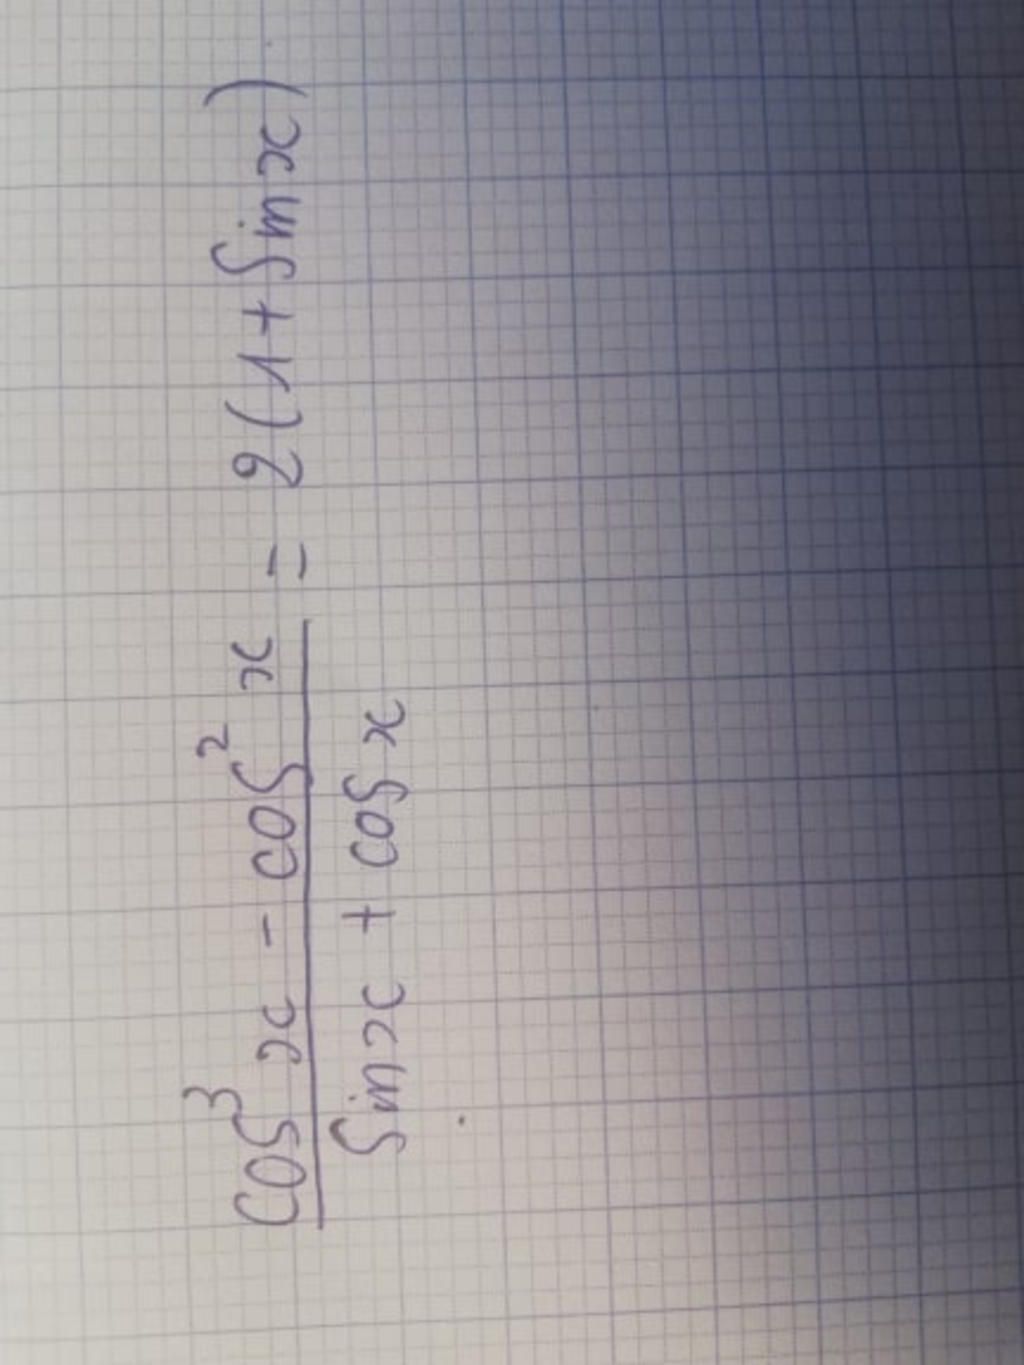 cos³x - cos²x / sinx + cosx = 2(1+sinx)